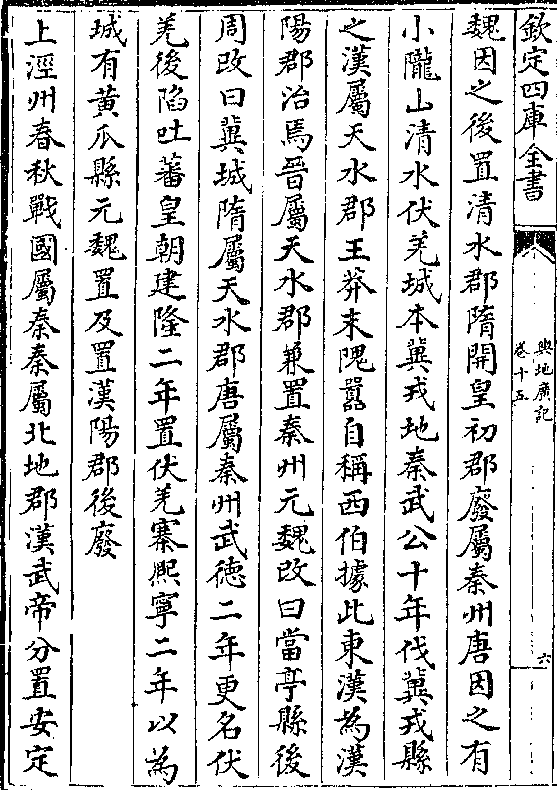 欽定四庫全書
輿地廣記
卷十五
六
魏因之後置清水郡隋開皇初郡廢屬秦州唐因之有
小隴山清水伏羌城本冀戎地秦武公十年伐冀戎縣
之漢屬天水郡王莽末隗囂自稱西伯據此東漢為漢
陽郡治焉晉屬天水郡兼置秦州元魏改曰當亭縣後
周改曰冀城隋屬天水郡唐屬秦州武德二年更名伏
羌後陷吐蕃皇朝建隆二年置伏羌寨熙寧二年以為
城有黄瓜縣元魏置及置漢陽郡後廢
上涇州春秋戰國屬秦秦屬北地郡漢武帝分置安定